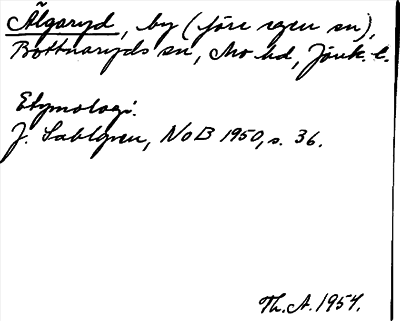 Älgaryd, by (förr egen sn),
Bottnaryds sn, Mo hd, Jönk. l.
Etymologi.
J. Sahlgren, NoB 1950, s. 36.
Th. A. 1954.